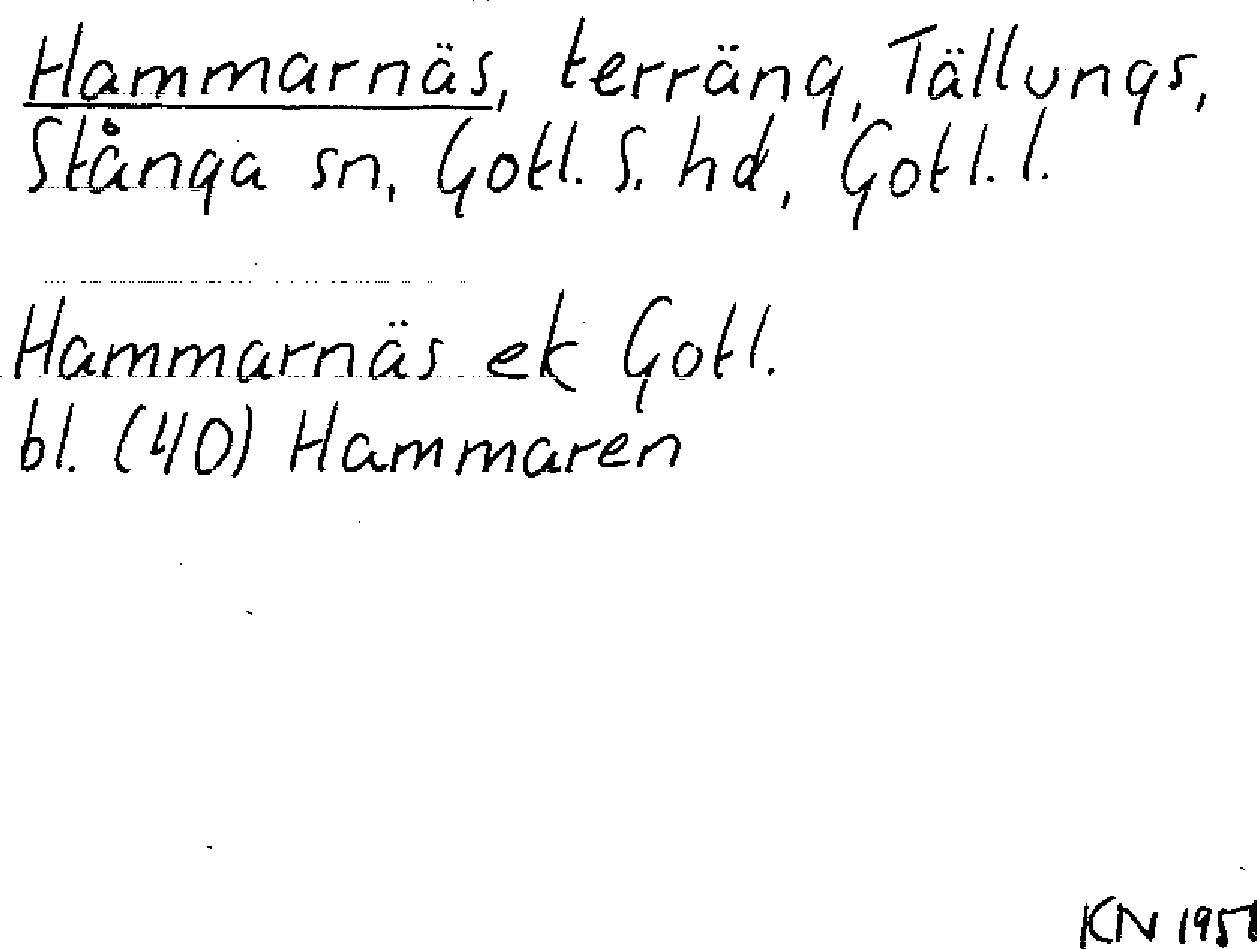 Hammarnäs, terräng, Tällungs,
Stånga sn, Gotl. S. hd, Gotl. l.
Hammarnäs ek Gotl.
bl. (40) Hammaren
KN 1951